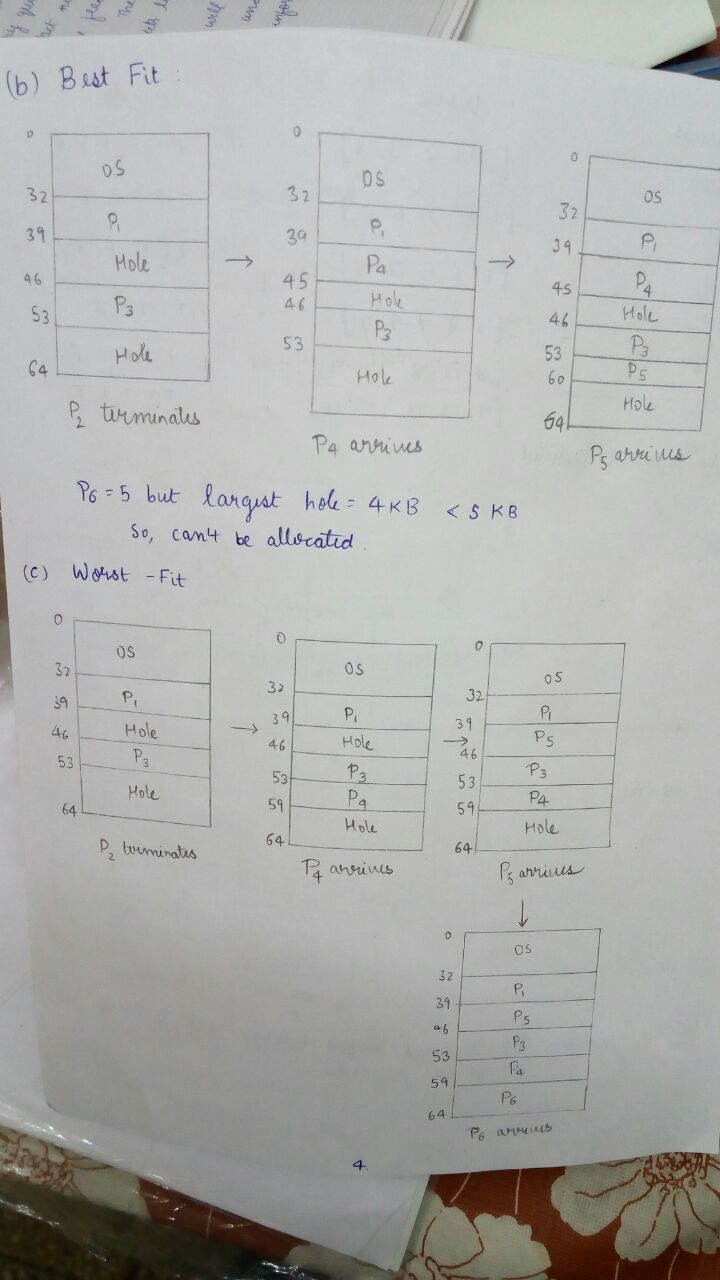 (b) Best Fit :
0
OS
32
P1
39
Hole
46
P3
53
Hole
64
P2 terminates
→
0
OS
32
P1
39
P4
45
Hole
46
P3
53
Hole
P4 arrives
→
0
OS
32
P1
39
P4
45
Hole
46
P3
53
P5
60
Hole
64
P5 arrives
P6 = 5 but largest hole = 4KB < 5 KB
So, can't be allocated.
(c) Worst - Fit
0
OS
32
P1
39
Hole
46
P3
53
Hole
64
P2 terminates
→
0
OS
32
P1
39
Hole
46
P3
53
P4
59
Hole
64
P4 arrives
→
0
OS
32
P1
39
P5
46
P3
53
P4
59
Hole
64
P5 arrives
↓
0
OS
32
P1
39
P5
46
P3
53
P4
59
P6
64
P6 arrives
4